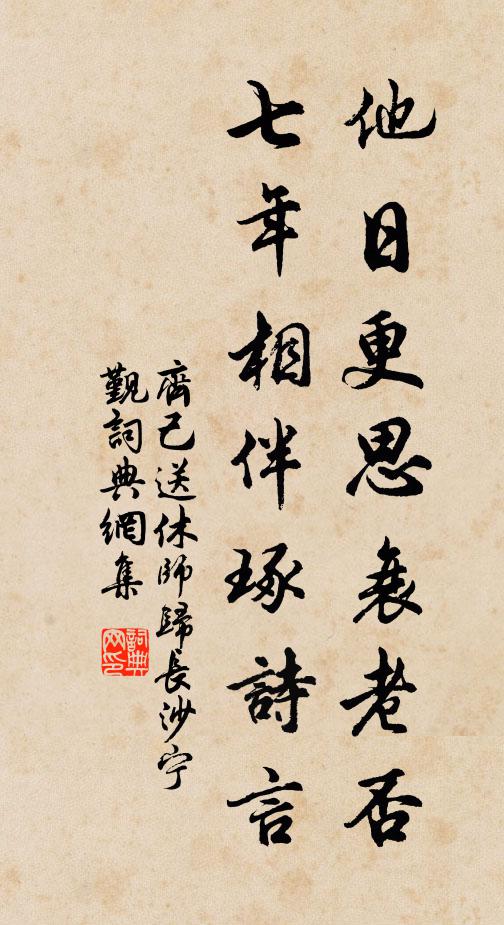 他日更思衰老否
七年相伴琢詩言
齊己送休師歸長沙宁
觐詞典網集
詞典
网印